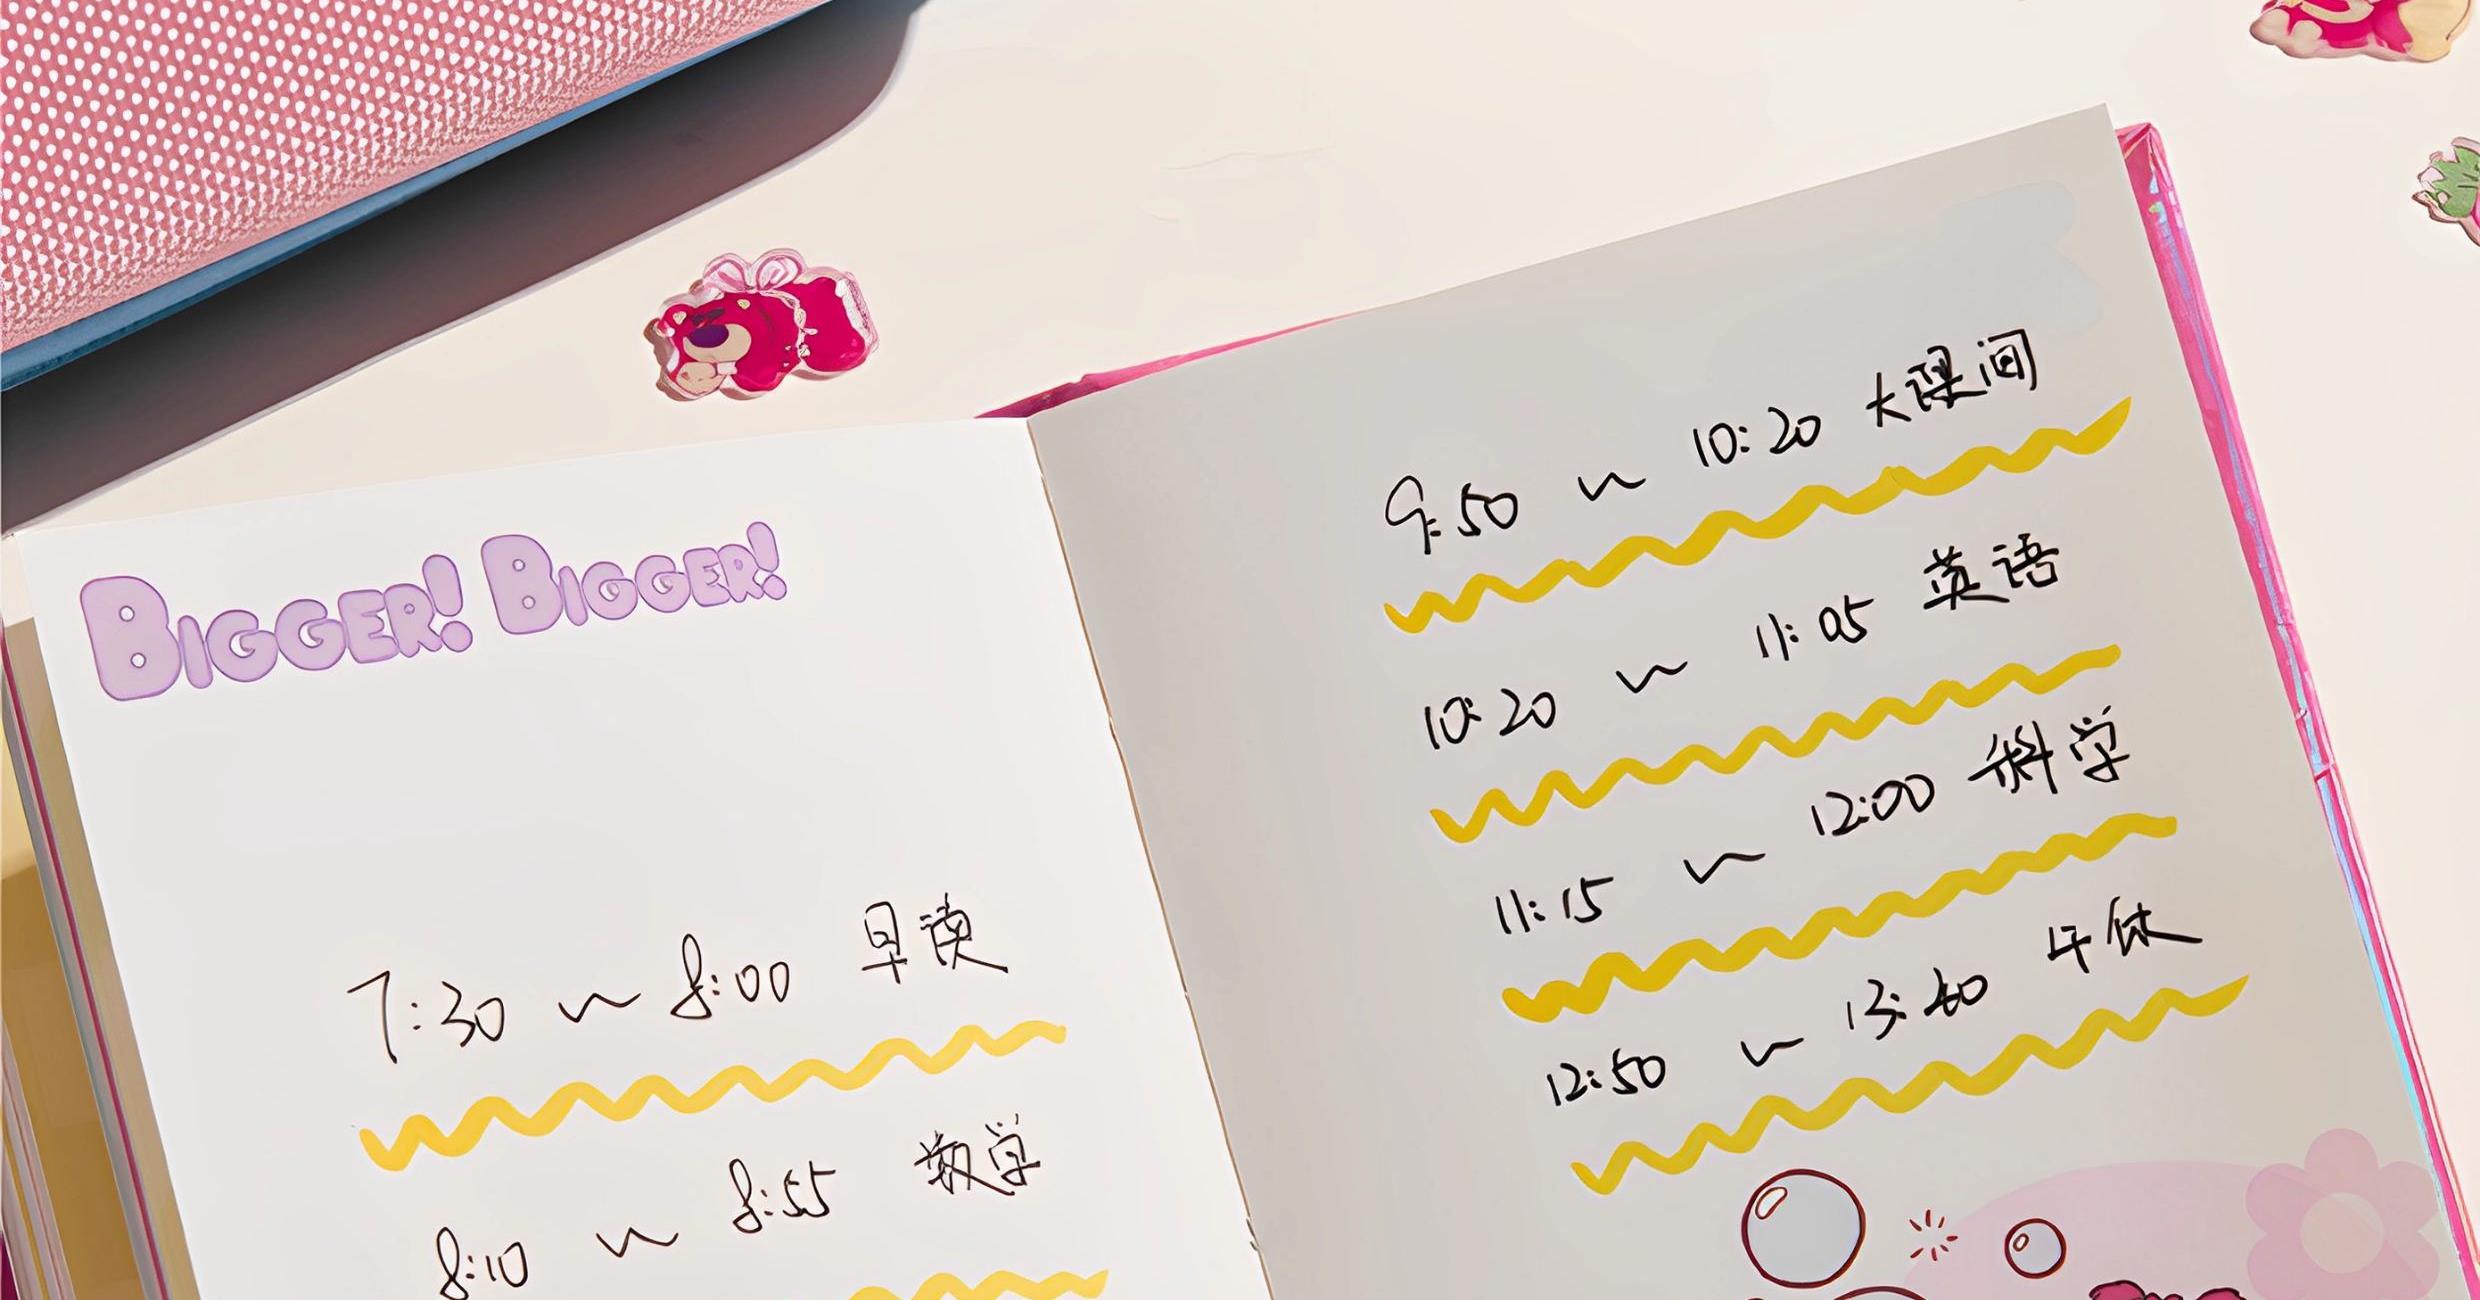 BIGGER! BIGGER!
7:30 ~ 8:00 早读
8:10 ~ 8:55 数学
9:50 ~ 10:20 大课间
10:20 ~ 11:05 英语
11:15 ~ 12:00 科学
12:50 ~ 午休